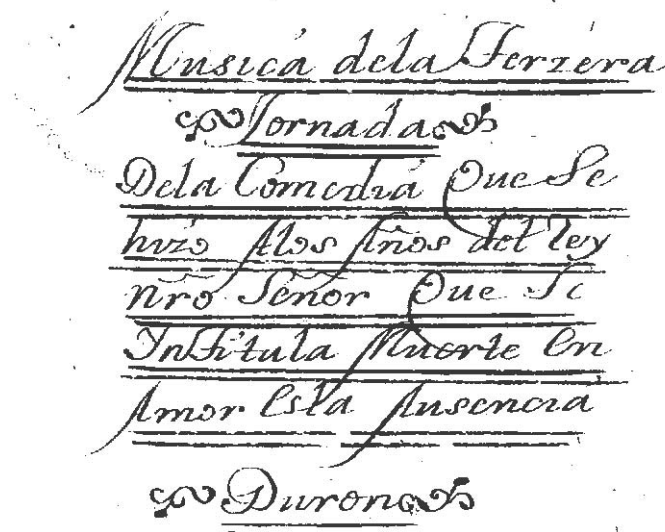 Musica dela Terzera
Jornada
Dela Comedia Que Se
hizo Alos Años del Rey
nr̃o Señor Que Se
Intitula Muerte En
Amor Esla Ausencia
Duron